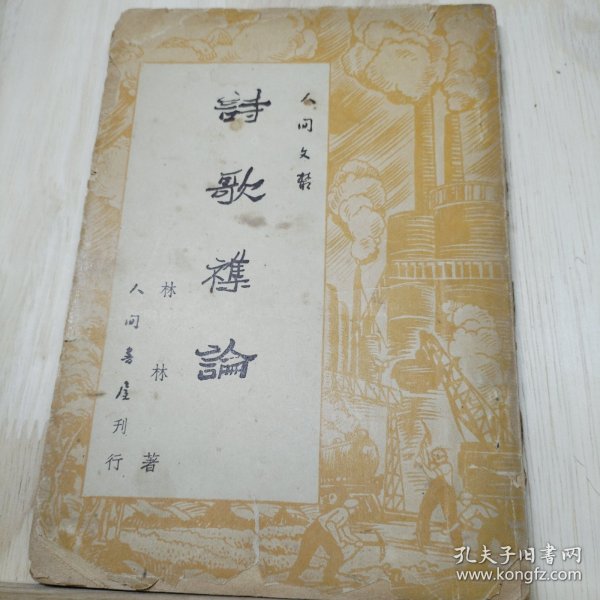 人间文丛
詩歌襍論
林林著
人间書屋刊行
孔夫子旧书网
www.kongfz.com